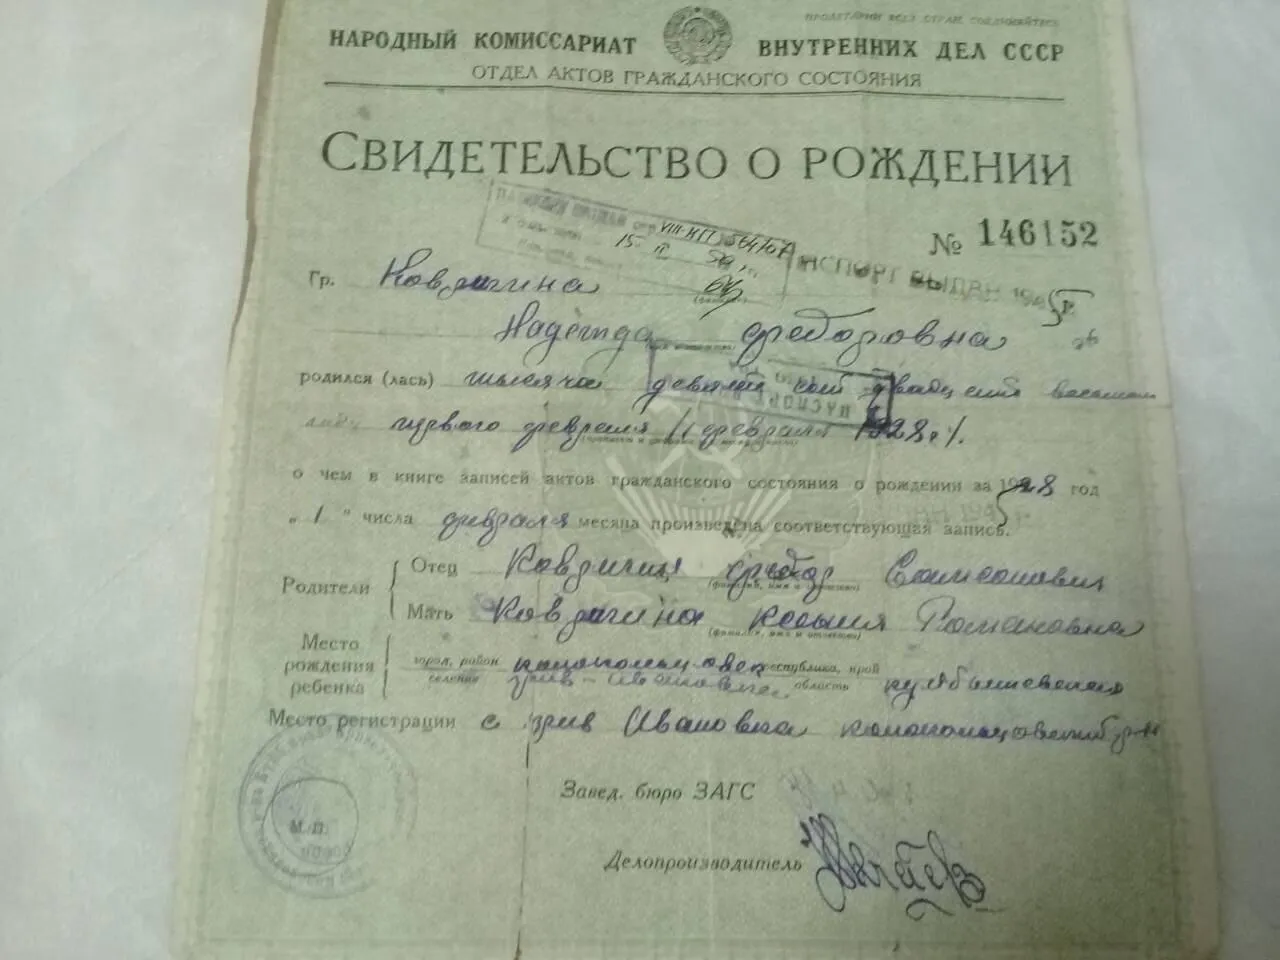 ПРОЛЕТАРИИ ВСЕХ СТРАН, СОЕДИНЯЙТЕСЬ
НАРОДНЫЙ КОМИССАРИАТ ВНУТРЕННИХ ДЕЛ СССР
ОТДЕЛ АКТОВ ГРАЖДАНСКОГО СОСТОЯНИЯ
СВИДЕТЕЛЬСТВО О РОЖДЕНИИ
№ 146152
VIII-НП 564707
15 II 50
ПАСПОРТ ВЫДАН 1945 г.
Гр. Ковригина
Надежда Федоровна
ПАСПОРТ
родился (лась) тысяча девятьсот двадцать восьмом
первого февраля /1 февраля 1928 г./
о чем в книге записей актов гражданского состояния о рождении за 1928 год
„ 1 " числа февраля месяца произведена соответствующая запись.
Родители
Отец Ковригин Федор Самсонович
Мать Ковригина Ксения Романовна
(фамилия, имя и отчество)
Место рождения ребенка
город, район республика, край
селение область Куйбышевская
Место регистрации с Ивановка
М. П.
Завед. бюро ЗАГС
Делопроизводитель